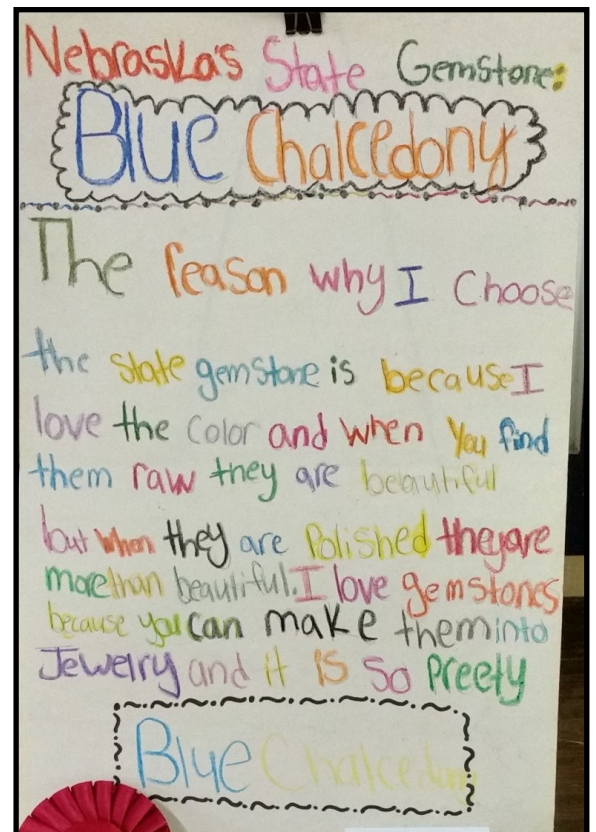 Nebraska's State Gemstone:
Blue Chalcedony
The reason why I Choose
the state gemstone is because I
love the color and when you find
them raw they are beautiful
but when they are Polished they are
more than beautiful. I love gemstones
because you can make them into
Jewelry and it is so preety
Blue Chalcedony